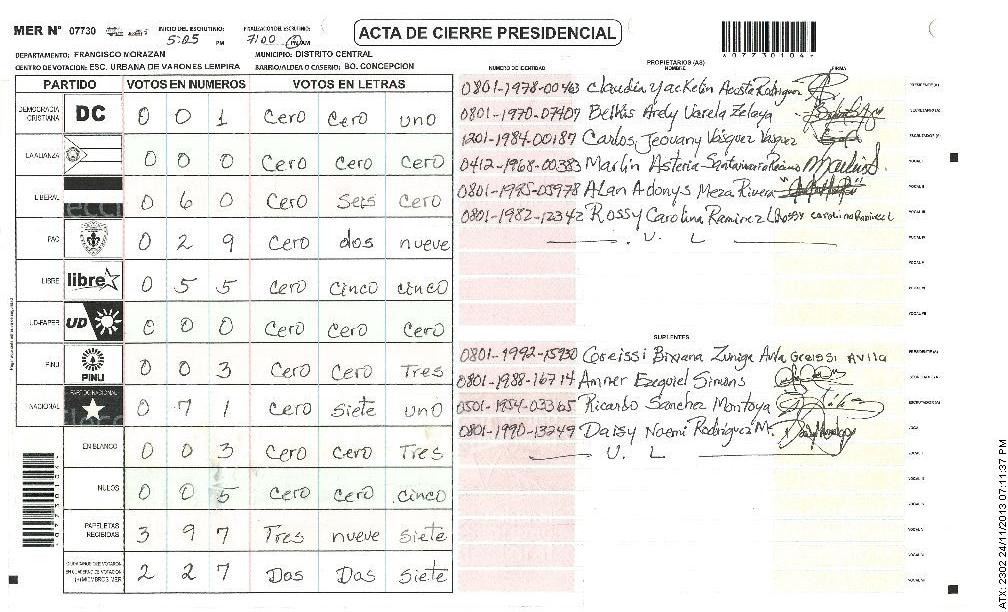 MER N° 07730 INICIO DEL ESCRUTINIO: 5:05 PM FINALIZACION DEL ESCRUTINIO: 7:00 PM/AM ACTA DE CIERRE PRESIDENCIAL 607730104
DEPARTAMENTO: FRANCISCO MORAZAN MUNICIPIO: DISTRITO CENTRAL
CENTRO DE VOTACION: ESC. URBANA DE VARONES LEMPIRA BARRIO/ALDEA O CASERIO: BO. CONCEPCION
PARTIDO VOTOS EN NUMEROS VOTOS EN LETRAS
DEMOCRACIA CRISTIANA DC 0 0 1 Cero Cero uno
LA ALIANZA 0 0 0 Cero Cero Cero
LIBERAL 0 6 0 Cero Seis Cero
PAC 0 2 9 Cero dos nueve
LIBRE libre 0 5 5 Cero Cinco cinco
UD-FAPER UD 0 0 0 Cero Cero Cero
PINU PINU 0 0 3 Cero Cero Tres
NACIONAL PARTIDO NACIONAL 0 7 1 Cero Siete uno
EN BLANCO 0 0 3 Cero Cero Tres
NULOS 0 0 5 Cero Cero cinco
PAPELETAS RECIBIDAS 3 9 7 Tres nueve siete
2 2 7 Dos Dos Siete
NUMERO DE IDENTIDAD PROPIETARIOS (AS) NOMBRE FIRMA
0801-1978-00463 Claudia Yackelin Acosta Rodriguez
0801-1970-07407 Belkis Ardy Varela Zelaya
1201-1984-00187 Carlos Jeovany Vásquez Vasquez
0412-1968-00383 Marlin Asteria Santamaria
0801-1995-05978 Alan Adonys Meza Rivera
0801-1982-12342 Rossy Carolina Ramirez L Rossy Carolina Ramirez L
. U. L
SUPLENTES
0801-1992-15930 Greissi Bixiana Zuniga Avila GREISSI AVILA
0801-1988-16714 Anner Ezequiel Simons
0501-1954-03365 Ricardo Sanchez Montoya
0801-1990-13249 Daisy Noemi Rodriguez M.
U. L
ATX: 2302 24/11/2013 07:11:37 PM